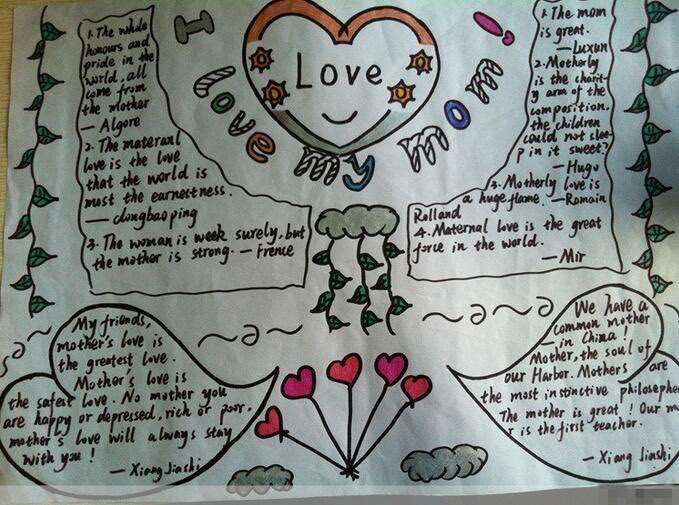 I love my mom!
Love
1. The whole
honours and
pride in the
world, all
come from
the mother
— Algore
2. The materanl
love is the love
that the world is
most the earnestness.
— dongbao ping
3. The woman is week surely, but
the mother is strong. — Frence
1. The mom
is great.
— Luxun
2. Motherly
is the charit-
y arm of the
composition.
the children
could not slee-
p in it sweet?
— Hugo
3. Motherly love is
a huge flame. — Romain
Rolland
4. Maternal love is the great
force in the world.
— Mir
My friends,
mother's love is
the greatest love.
Mother's love is
the safest love. No mother you
are happy or depressed, rich or poor,
mother's love will always stay
with you!
— Xiang Jinshi
We have a
common mother
— in China!
Mother, the soul of
our Harbor. Mothers are
the most instinctive philosophe
The mother is great! Our m
r is the first teacher.
— Xiang Jinshi